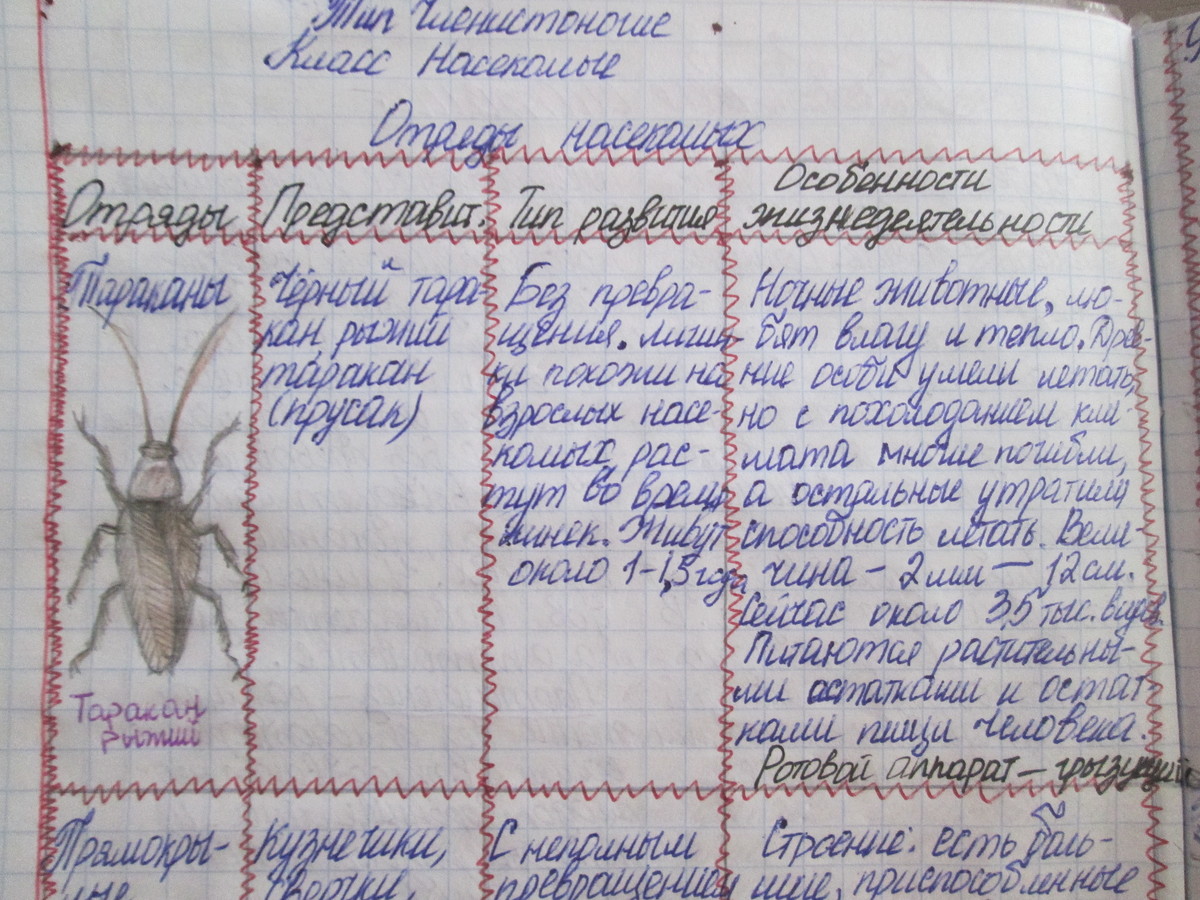 Тип Членистоногие
Класс Насекомые
Отряды насекомых
Отряды
Представит.
Тип развития
Особенности
жизнедеятельности
Тараканы
Таракан
рыжий
Чёрный тара-
кан рыжий
таракан
(прусак)
Без превра-
щения. личин-
ки похожи на
взрослых насе-
комых рас-
тут во время
линек. Живут
около 1-1,5 года
Ночные животные, лю-
бят влагу и тепло. Древ-
ние особи умели летать,
но с похолоданием кли-
мата многие погибли,
а остальные утратили
способность летать. Вели-
чина - 2 мм - 12 см.
Сейчас около 3,5 тыс. видов.
Питаются растительны-
ми остатками и остат-
ками пищи человека.
Ротовой аппарат - грызущий
Прямокры-
лые
Кузнечики,
сверчки,
С неполным
превращением
Строение: есть боль-
шие, приспособленные